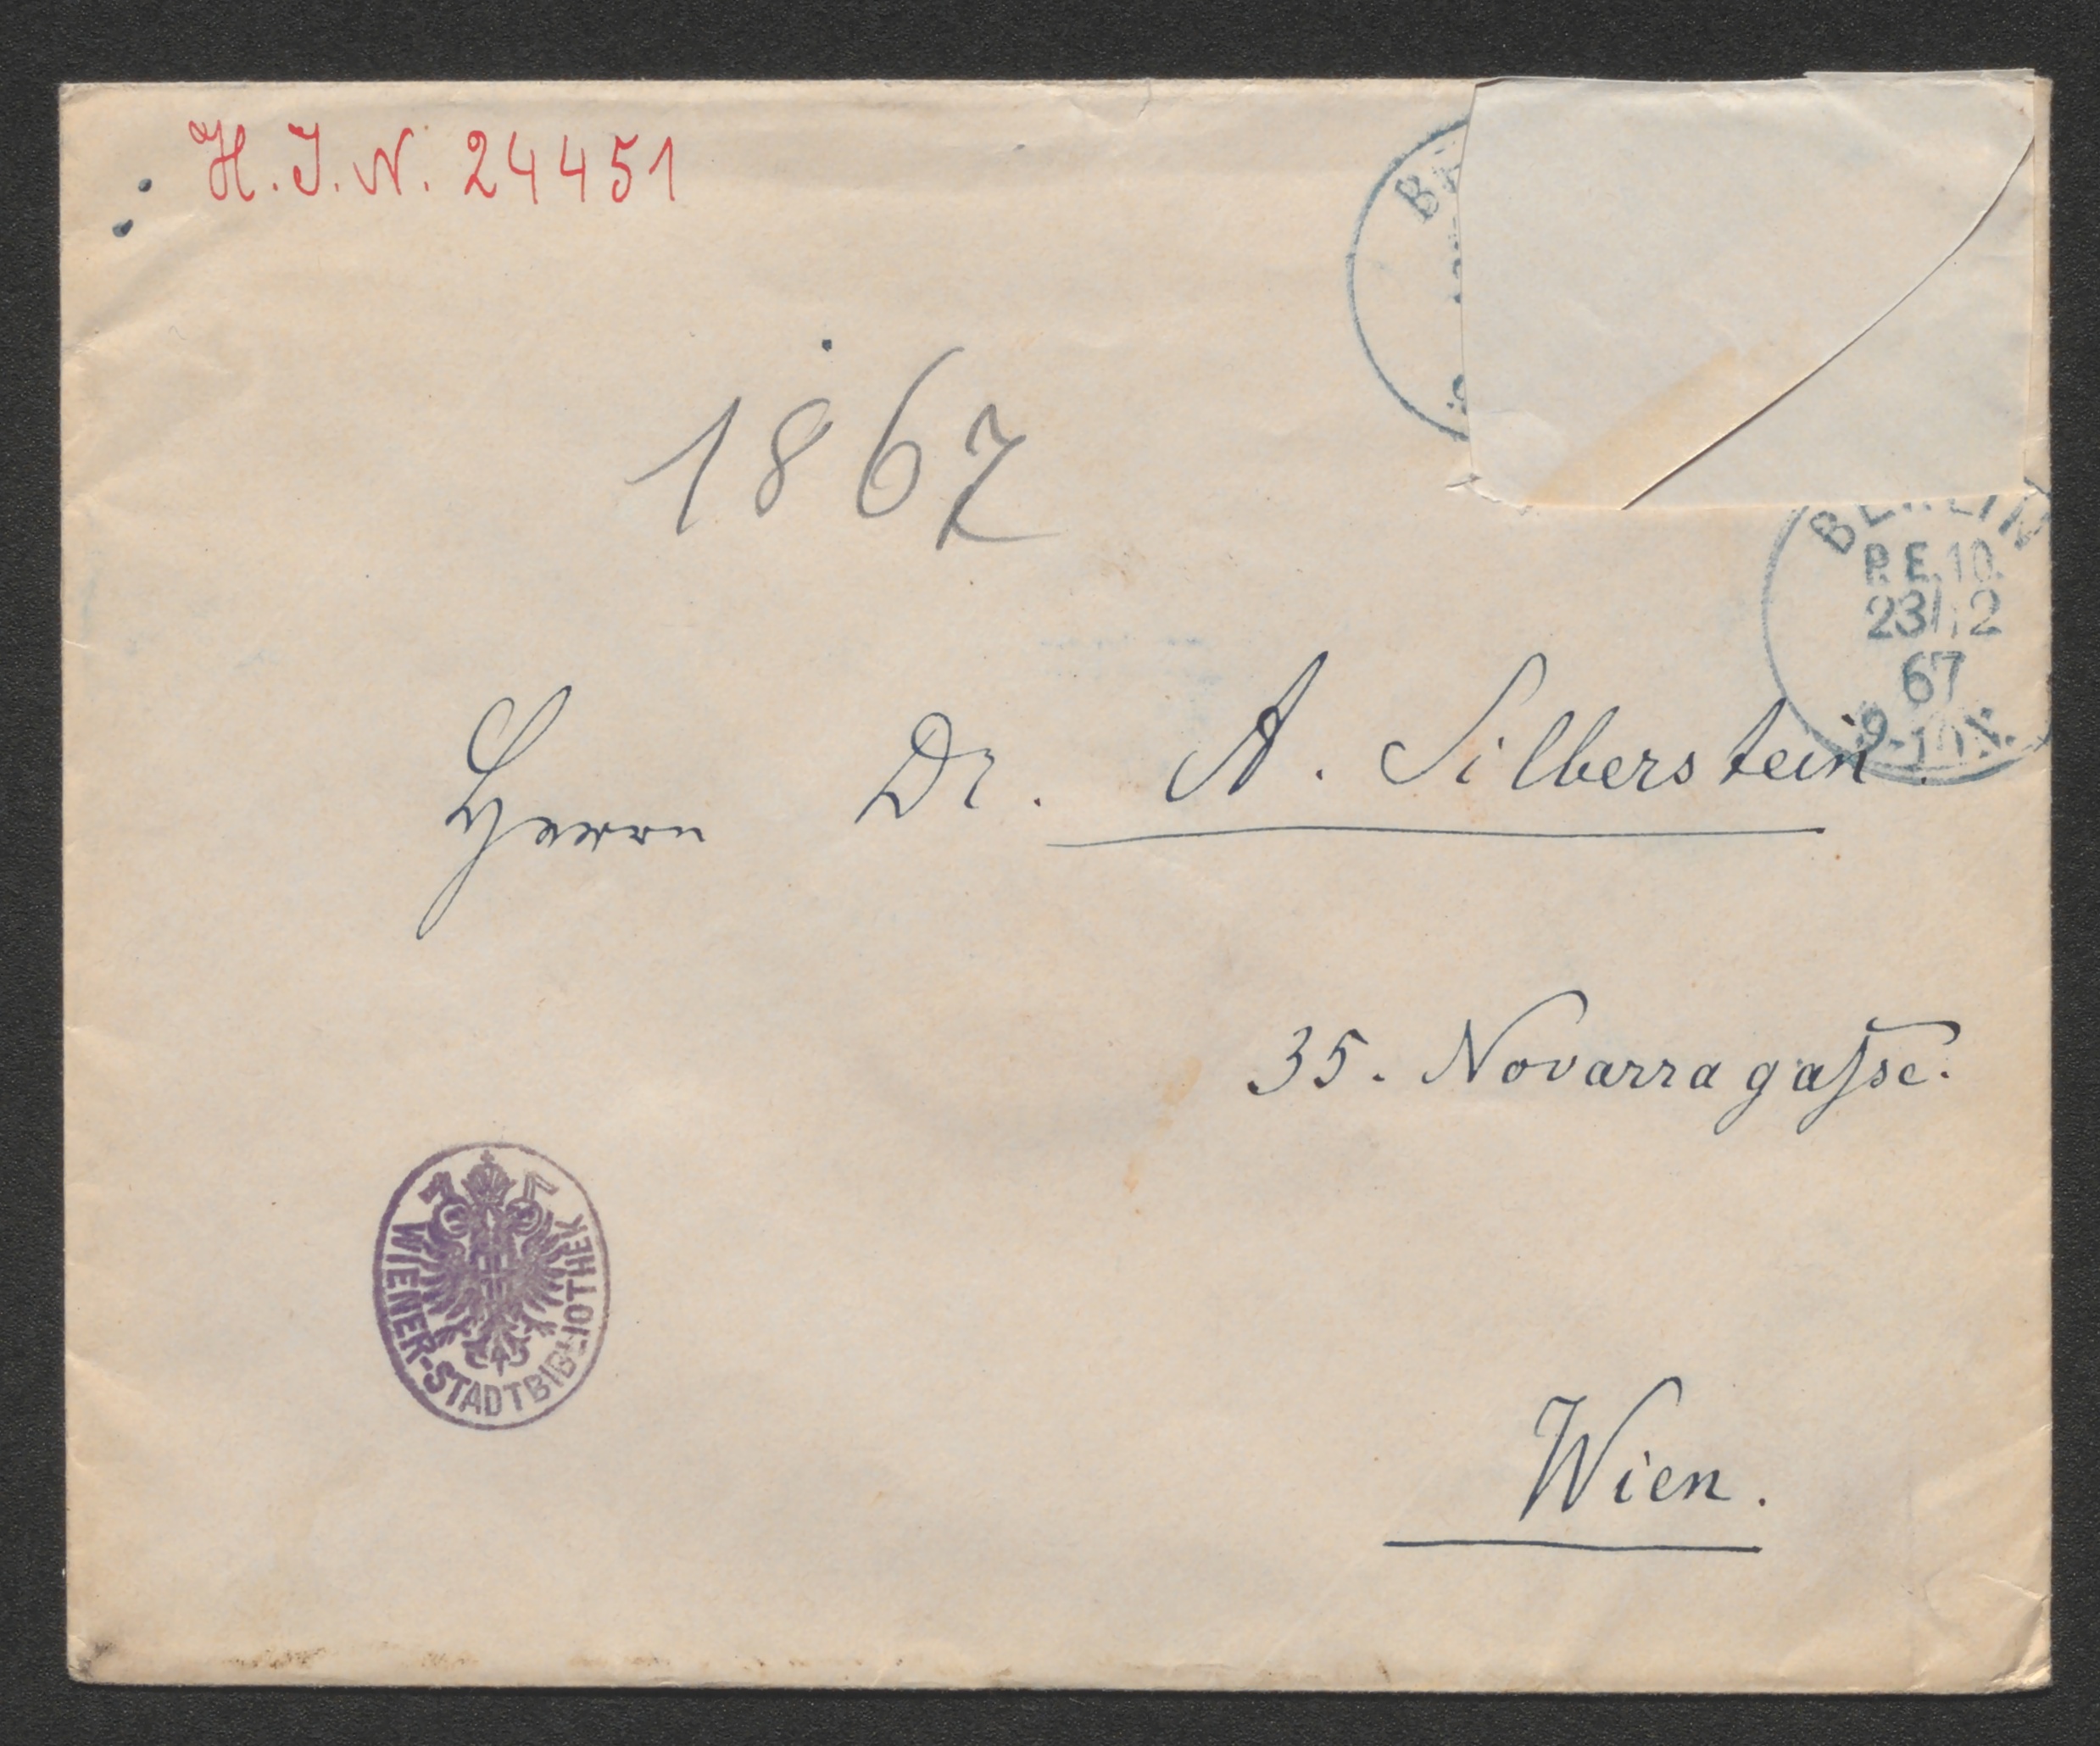 H. J. N. 24451
1867
BERLIN
P.E.10.
23/12
67
Herrn Dr. A. Silberstein.
35. Novarragaſse.
WIENER-STADTBIBLIOTHEK
Wien.